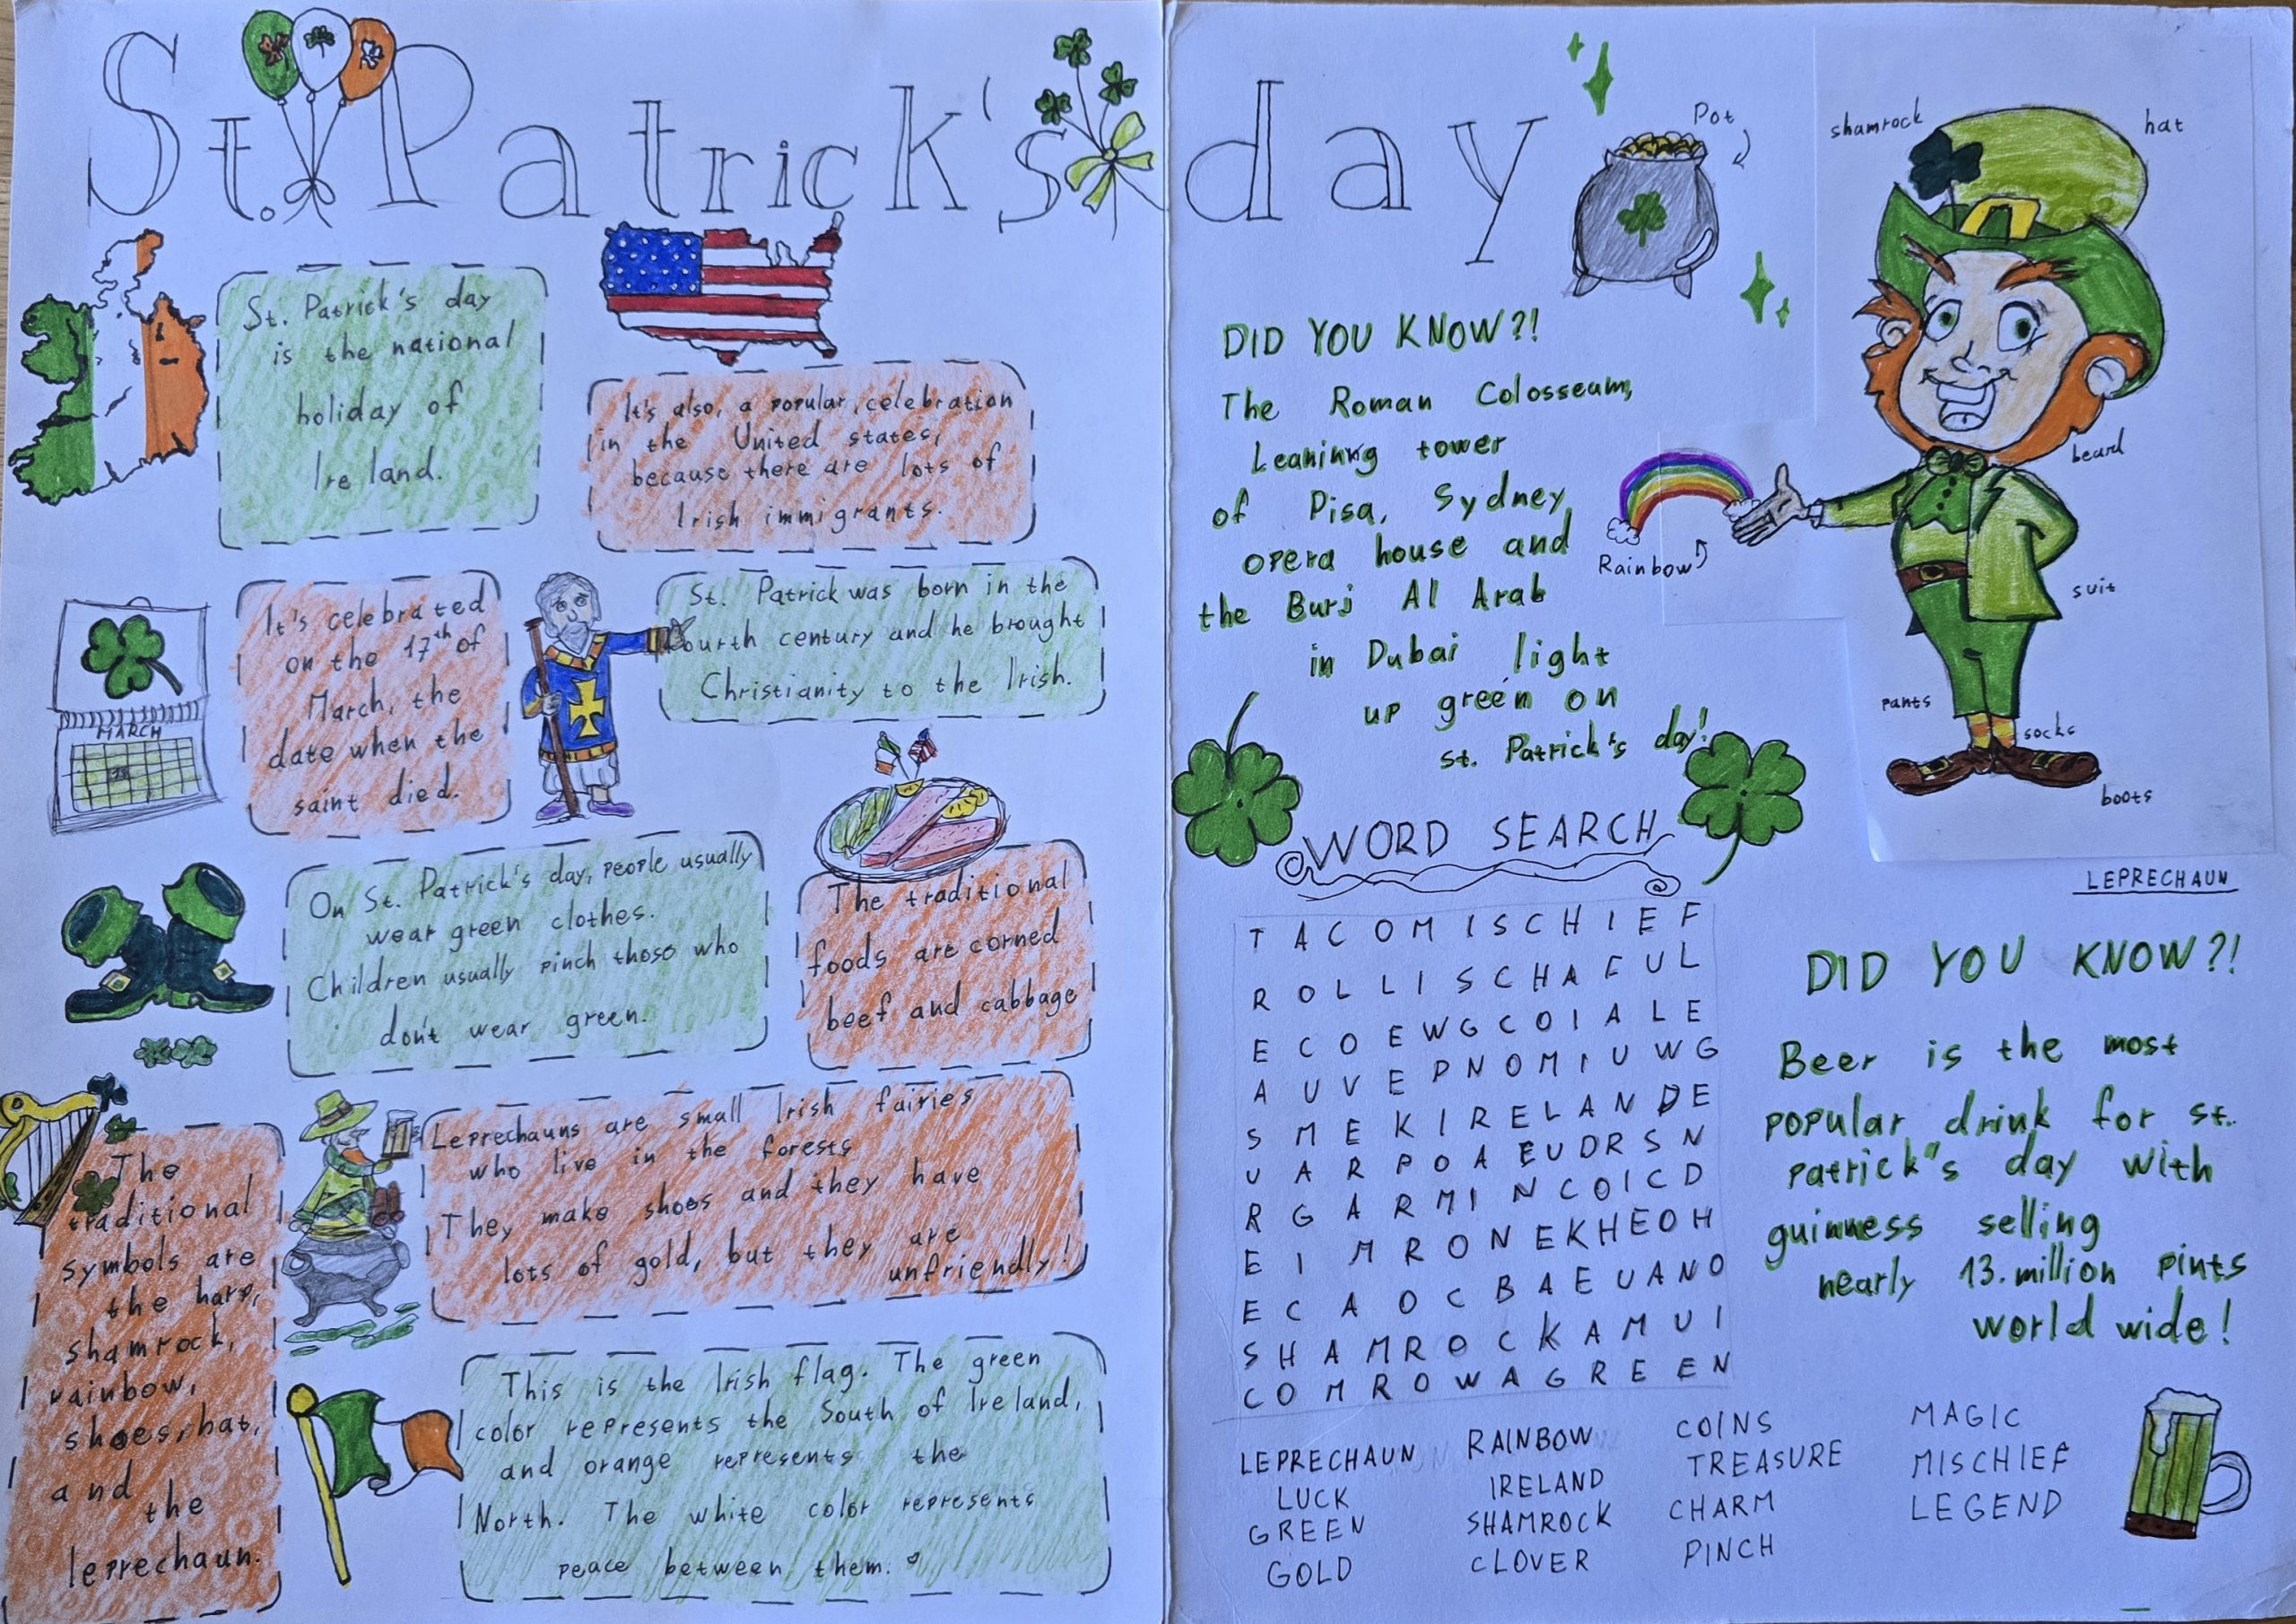 St. Patrick's day
St. Patrick's day
is the national
holiday of
Ireland.
It's also, a popular celebration
in the United states,
because there are lots of
Irish immigrants.
It's celebrated
on the 17th of
March, the
date when the
saint died.
MARCH
St. Patrick was born in the
fourth century and he brought
Christianity to the Irish.
On St. Patrick's day, people usually
wear green clothes.
Children usually pinch those who
don't wear green.
The traditional
foods are corned
beef and cabbage
The
traditional
symbols are
the harp,
shamrock,
rainbow,
shoes, hat,
and
the
leprechaun.
Leprechauns are small Irish fairies
who live in the forests
They make shoes and they have
lots of gold, but they are
unfriendly!
This is the Irish flag. The green
color represents the South of Ireland,
and orange represents the
North. The white color represents
peace between them.
Pot
shamrock
hat
beard
suit
pants
socks
boots
Rainbow
LEPRECHAUN
DID YOU KNOW?!
The Roman Colosseum,
Leaning tower
of Pisa, Sydney
opera house and
the Burj Al Arab
in Dubai light
up green on
st. Patrick's day!
WORD SEARCH
T A C O M I S C H I E F
R O L L I S C H A F U L
E C O E W G C O I A L E
A U V E P N O M I U W G
S M E K I R E L A N D E
U A R P O A E U D R S N
R G A R M I N C O I C D
E I M R O N E K H E O H
E C A O C B A E U A N O
S H A M R O C K A M U I
C O M R O W A G R E E N
LEPRECHAUN RAINBOW COINS MAGIC
LUCK IRELAND TREASURE MISCHIEF
GREEN SHAMROCK CHARM LEGEND
GOLD CLOVER PINCH
DID YOU KNOW?!
Beer is the most
popular drink for st.
Patrick"s day with
guinness selling
nearly 13.million pints
world wide!